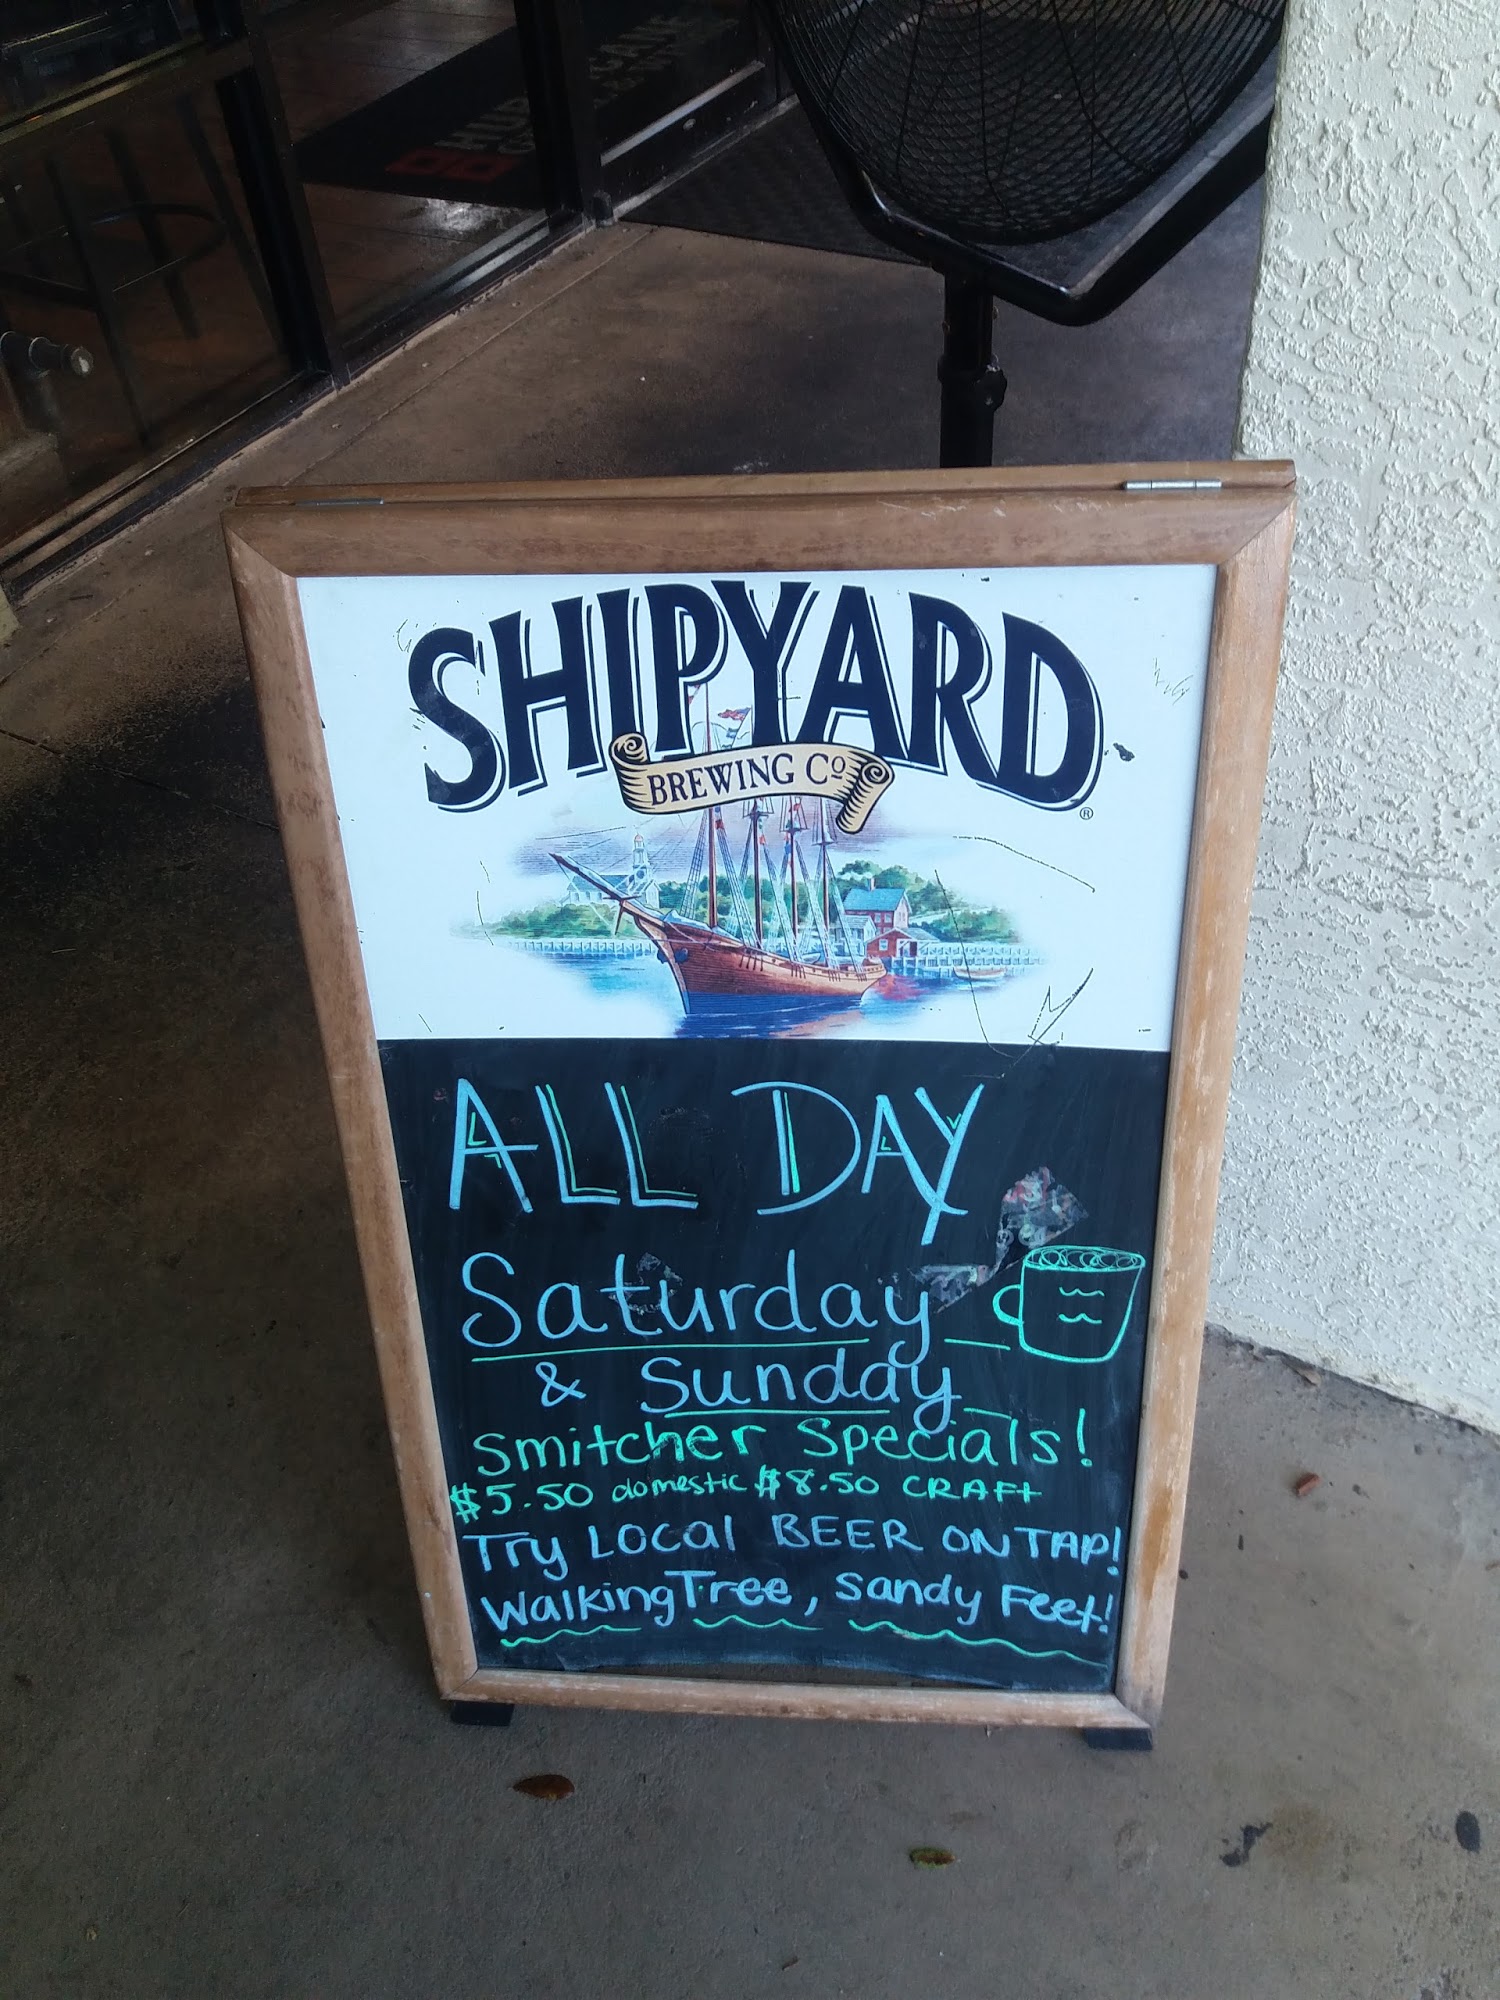 SHIPYARD
BREWING Co
®
ALL DAY
Saturday
& Sunday
Smitcher Specials!
$5.50 domestic $8.50 CRAFT
Try LOCal BEER ON TAP!
Walking Tree, Sandy Feet!